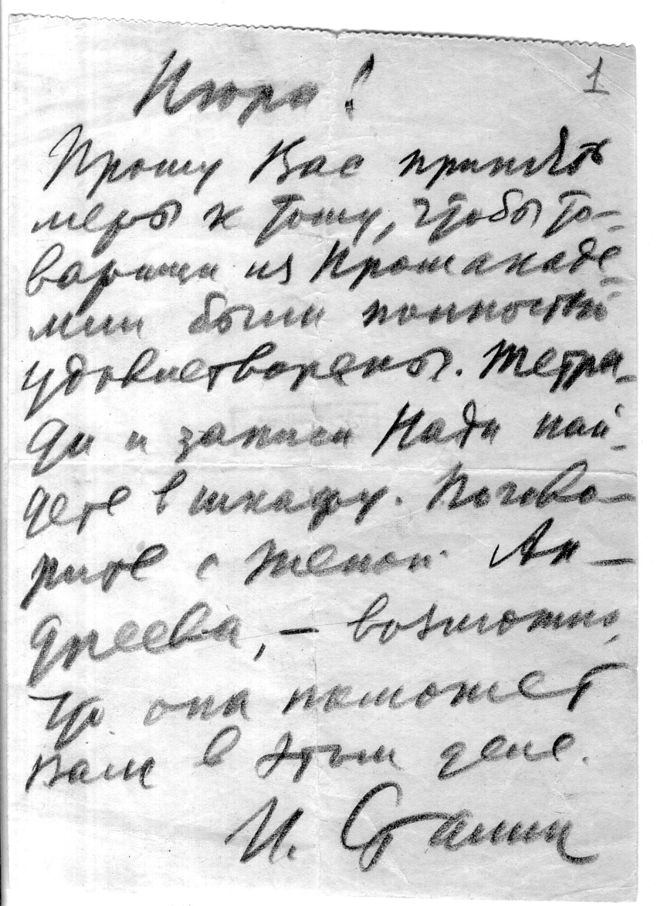 Нюра!
1
Прошу Вас принять
меры к тому, чтобы то-
варищи из Промакаде-
мии были полностью
удовлетворены. Тетра-
ди и записи Нади най-
дете в шкафу. Погово-
рите с женой Ан-
дреева, – возможно,
что она поможет
Вам в этом деле.
И. Сталин